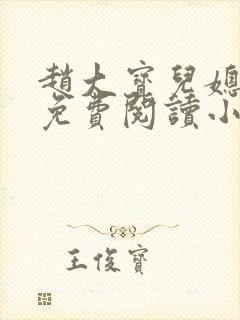 趙大寶兒媳
免費閱讀小
王俊寶